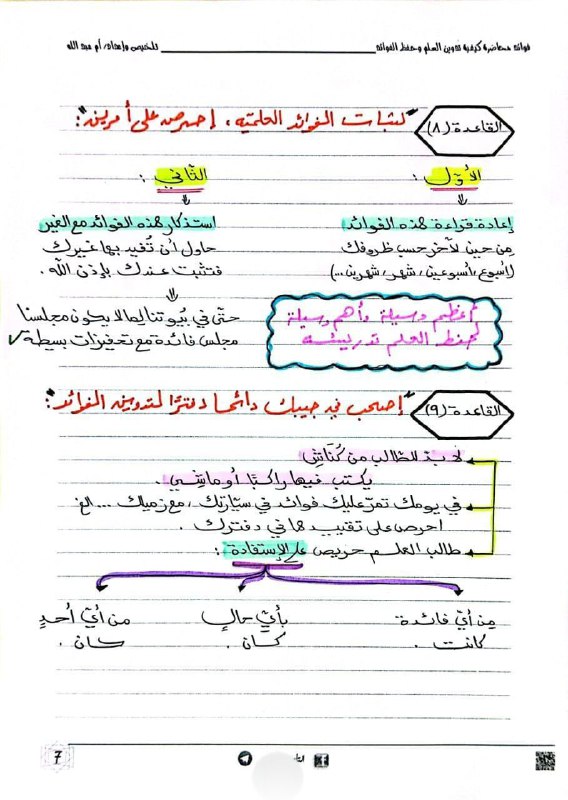 فوائد محاضرة كيفية تدوين العلم وحفظ الفوائد
تلخيص وإعداد: أم عبد الله
القاعدة (٨)
"لثبات الفوائد العلمية، إحرص على أمرين":
الأوّل :
إعادة قراءة هذه الفوائد
مِن حين لآخر حسب ظروفك
(أسبوع، أسبوعين، شهر، شهرين...)
أعظم وسيلة وأهم وسيلة
لحفظ العلم تدريسه
الثّاني :
استذكار هذه الفوائد مع الغير
حاول أن تُفيد بها غيرك
فتثبت عندك بإذن الله.
حتّى في بيوتنا لما لا يكون مجلسنا
مجلس فائدة مع تحفيزات بسيطة ✓
القاعدة (٩)
"إصحب في جيبك دائما دفترًا لتدوين الفوائد":
لا بدّ للطالب من كُنّاشٍ
يكتب فيها راكبًا أو ماشي.
في يومك تمرّ عليك فوائد في سيّارتك، مع زميلك ... الخ
احرص على تقييدها في دفترك.
طالب العلم حريص على الإستفادة :
مِن أيّ فائدة
كانت .
بأيّ حالٍ
كان .
من أيّ أحدٍ
كان .
7